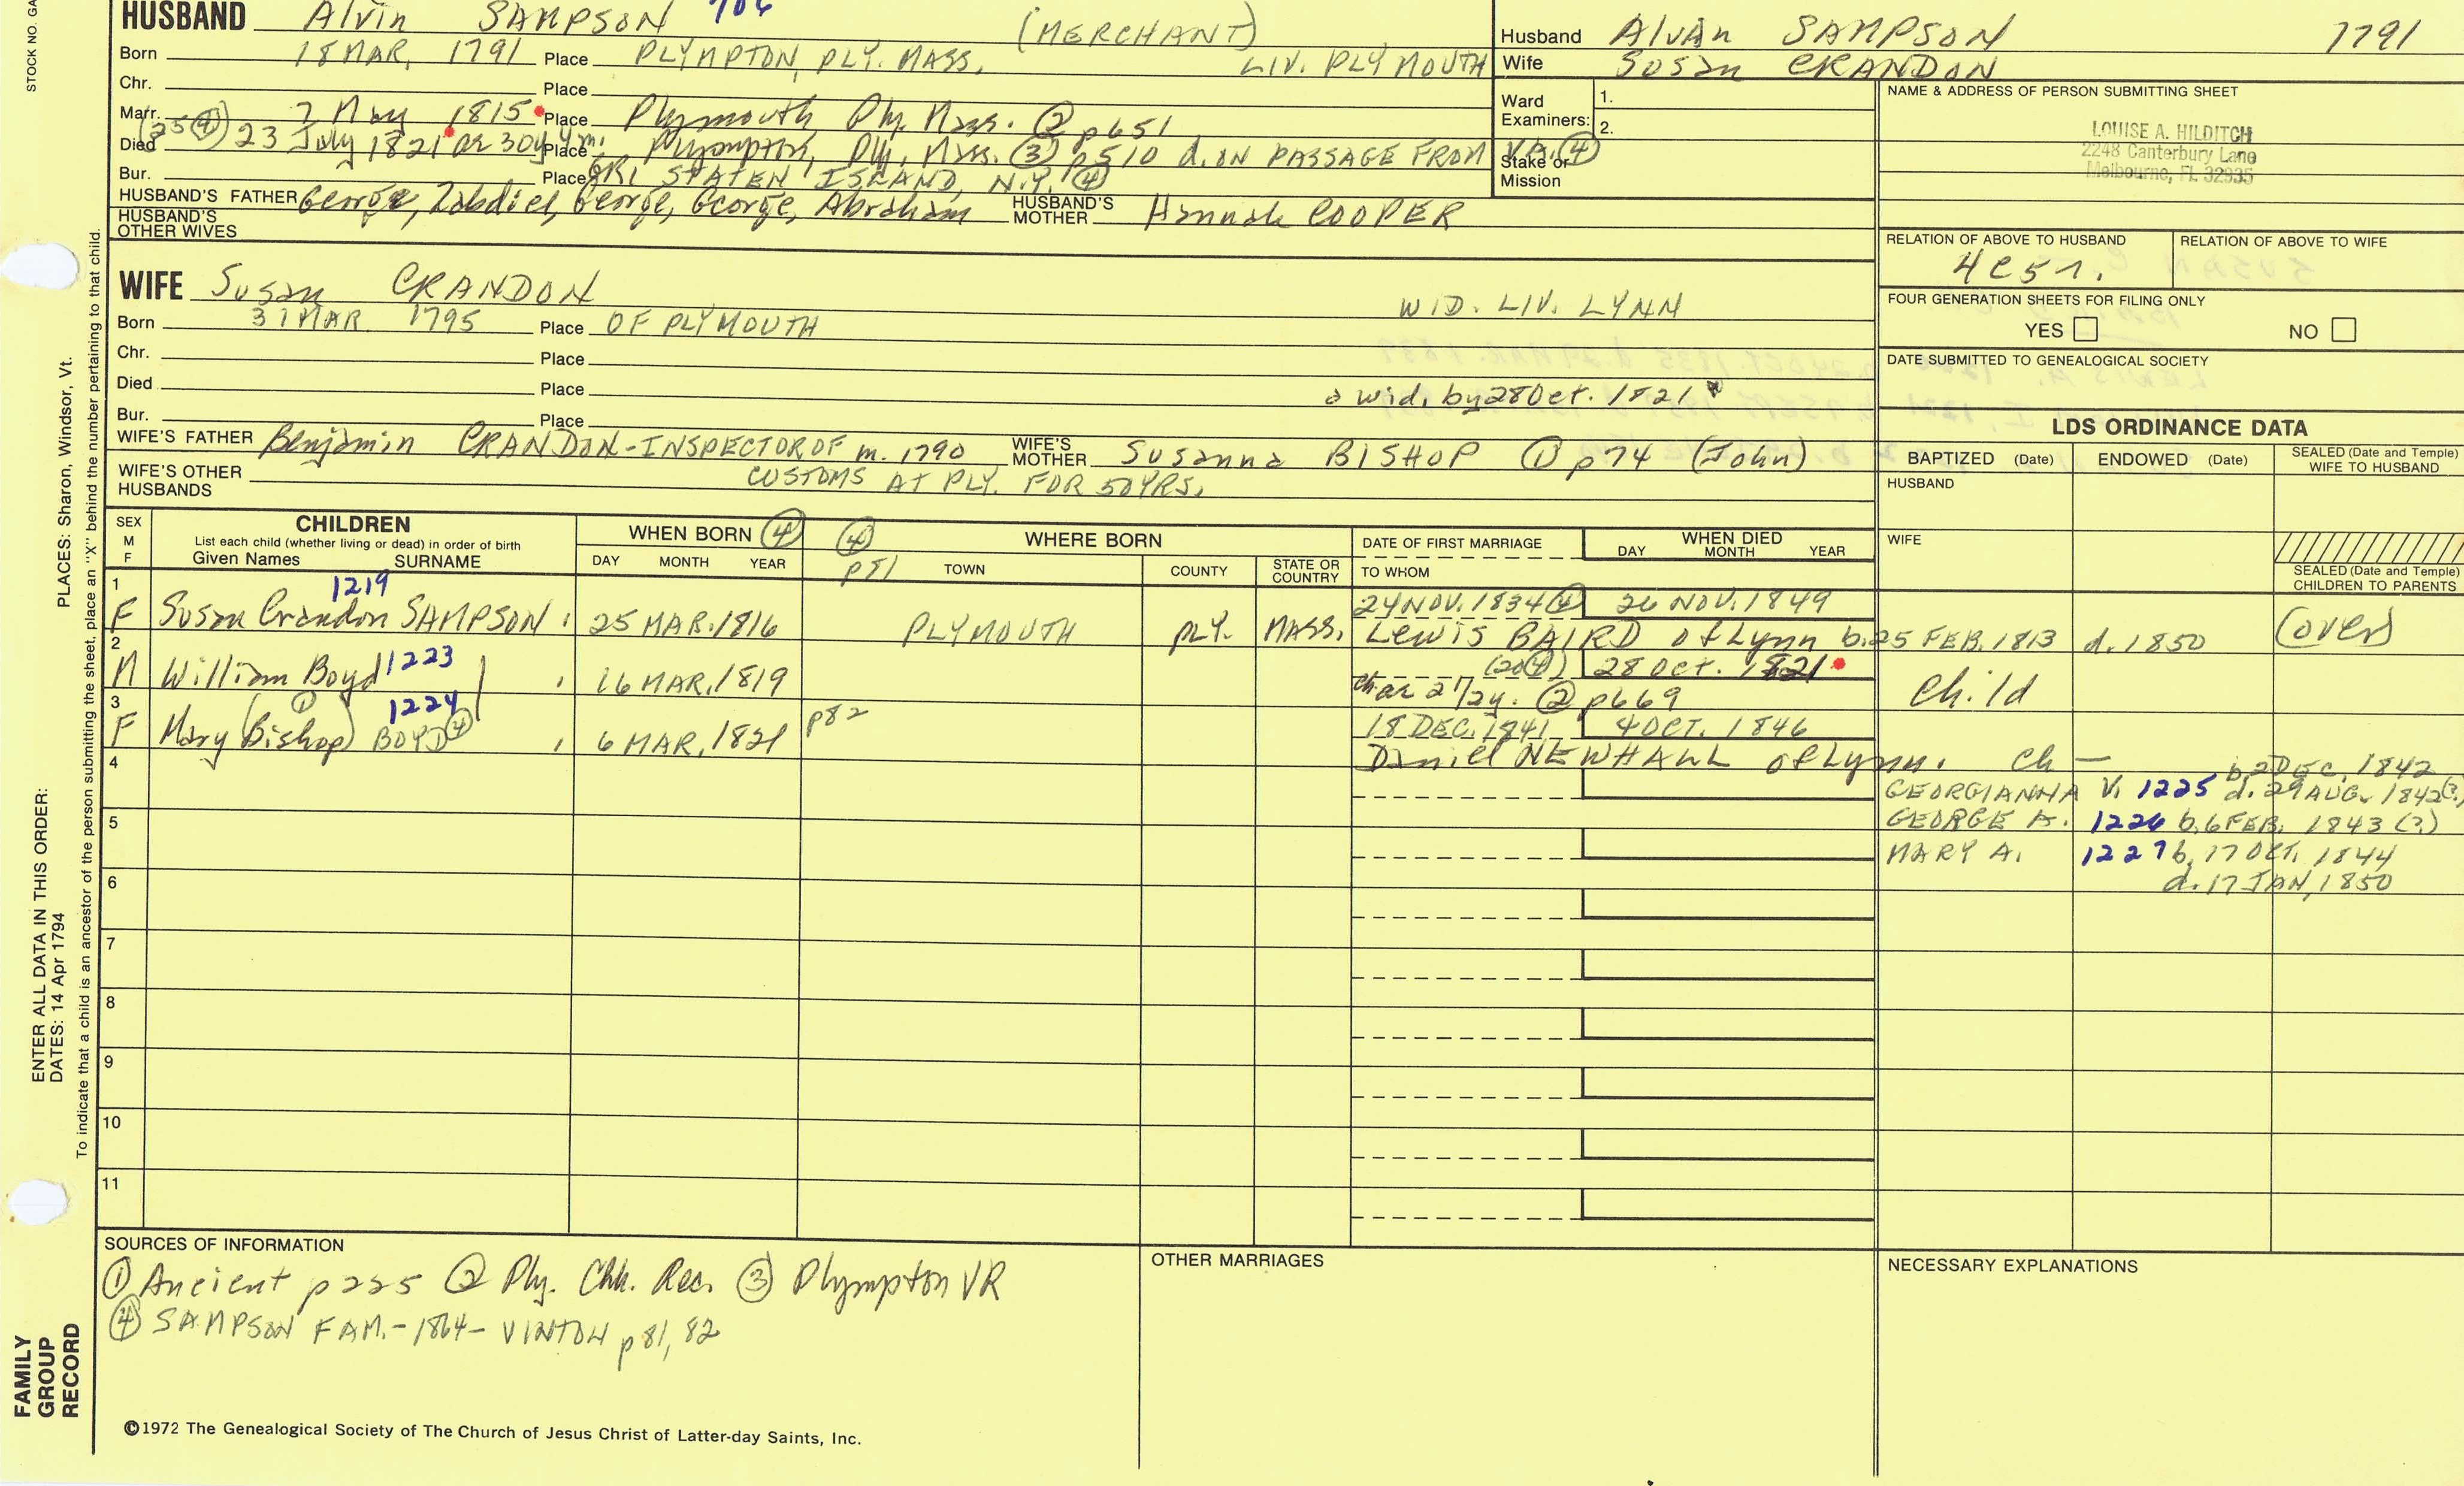 STOCK NO. GA
HUSBAND Alvin SAMPSON 706 (MERCHANT)
Born 18 MAR, 1791 Place PLYMPTON, PLY. MASS, LIV. PLYMOUTH
Chr. Place
Marr. 7 May 1815 Place Plymouth Ply. Mass. ② p651
(25④) 
Died 23 July 1821 ae 30y 4m. Place Plympton, Ply, Mass. ③ p510 d. ON PASSAGE FROM VA. ④
Bur. Place GRI STATEN ISLAND, N.Y. ④
HUSBAND'S FATHER George, Zabdiel, George, George, Abraham HUSBAND'S MOTHER Hannah COOPER
HUSBAND'S OTHER WIVES
Husband Alvan SAMPSON 1791
Wife Susan CRANDON
Ward Examiners: 1.
2.
Stake or Mission
NAME & ADDRESS OF PERSON SUBMITTING SHEET
LOUISE A. HILDITCH
2248 Canterbury Lane
Melbourne, FL 32935
RELATION OF ABOVE TO HUSBAND RELATION OF ABOVE TO WIFE
4c5r.
FOUR GENERATION SHEETS FOR FILING ONLY
YES NO
DATE SUBMITTED TO GENEALOGICAL SOCIETY
WIFE Susan CRANDON WID. LIV. LYNN
Born 31 MAR 1795 Place OF PLYMOUTH
Chr. Place
Died Place a wid. by 28 Oct. 1821
Bur. Place
WIFE'S FATHER Benjamin CRANDON-INSPECTOR OF m. 1790 WIFE'S MOTHER Susanna BISHOP ① p74 (John)
CUSTOMS AT PLY. FOR 50 YRS.
WIFE'S OTHER HUSBANDS
LDS ORDINANCE DATA
BAPTIZED (Date) ENDOWED (Date) SEALED (Date and Temple) WIFE TO HUSBAND
HUSBAND
WIFE
SEALED (Date and Temple) CHILDREN TO PARENTS
SEX M F
CHILDREN
List each child (whether living or dead) in order of birth
Given Names SURNAME
WHEN BORN ④
DAY MONTH YEAR
④ p81 WHERE BORN
TOWN COUNTY STATE OR COUNTRY
DATE OF FIRST MARRIAGE
TO WHOM
WHEN DIED
DAY MONTH YEAR
1 1219 24 NOV. 1834 ④ 26 NOV. 1849
F Susan Crandon SAMPSON 25 MAR. 1816 PLYMOUTH PLY. MASS. Lewis BAIRD of Lynn b. 25 FEB. 1813 d. 1850 (over)
2 1223 (20④) 28 Oct. 1821
M William Boyd 16 MAR. 1819 ch ae 2 1/2y. ② p669 Child
3 1224 p82 18 DEC. 1841 4 OCT. 1846
F Mary (Bishop) ① BOYD ④ 6 MAR. 1821 Daniel NEWHALL of Lynn. Ch —
4 b. 2 DEC. 1842
GEORGIANNA V. 1225 d. 29 AUG. 1842(?)
5 GEORGE A. 1226 b. 6 FEB. 1843 (?)
MARY A. 1227 b. 17 OCT. 1844
6 d. 17 JAN, 1850
7
8
9
10
11
SOURCES OF INFORMATION
① Ancient p225 ② Ply. Chh. Rec. ③ Plympton VR
④ SAMPSON FAM.-1864- VINTON p81, 82
OTHER MARRIAGES
NECESSARY EXPLANATIONS
©1972 The Genealogical Society of The Church of Jesus Christ of Latter-day Saints, Inc.
FAMILY GROUP RECORD
ENTER ALL DATA IN THIS ORDER:
DATES: 14 Apr 1794
PLACES: Sharon, Windsor, Vt.
To indicate that a child is an ancestor of the person submitting the sheet, place an "X" behind the number pertaining to that child.